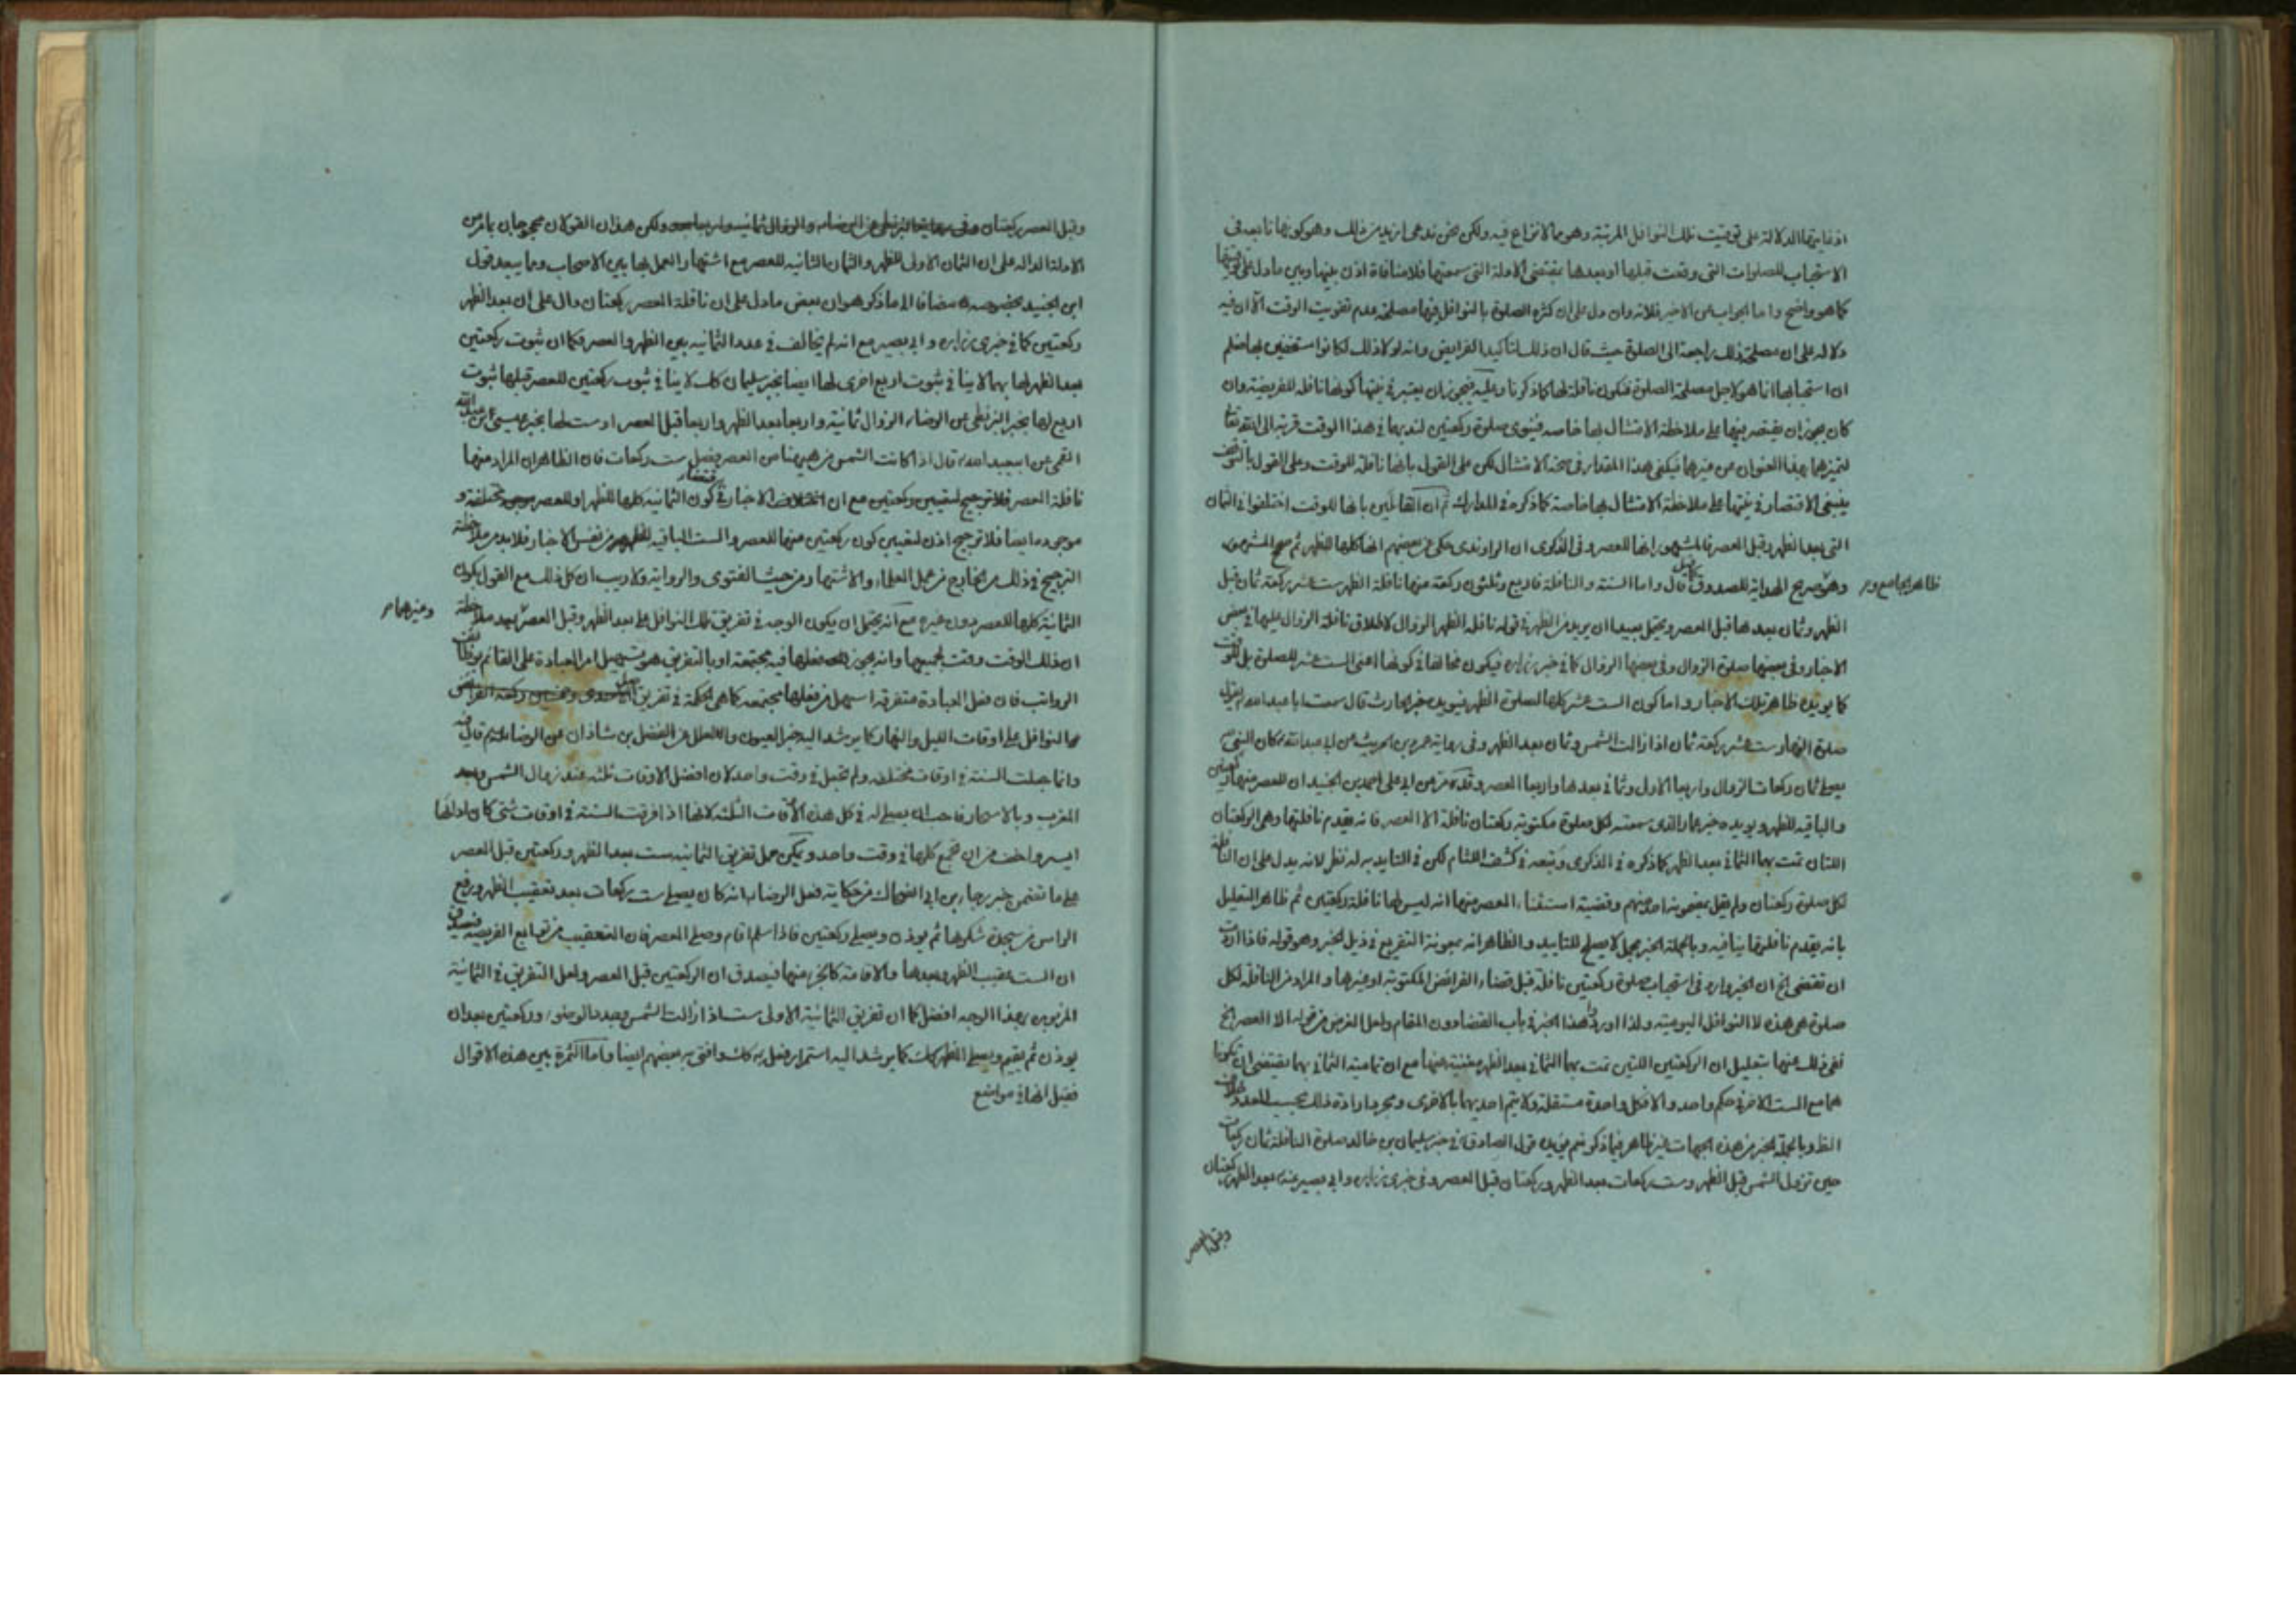 اذ غايتها الدلالة على توقيت تلك النوافل المرتبة وهو مما لا نزاع فيه ولكن نحن ندعى ازيد من ذلك وهو كونها تابعة في
الاستحباب للصلوات التي وقعت قبلها او بعدها بمقتضى الادلة التي سمعتها فلا منافاة اذن بينها وبين ما دل على توقيتها
كما هو واضح واما الجواب عن الاخير فلانه وان دل على ان كثرة الصلوة بالنوافل فيها مصلحة عدم تفويت الوقت الا ان فيه
دلالة على ان مصلحة ذلك راجعة الى الصلوة حيث قال ان ذلك لتاكيد الفرايض وانه لولا ذلك لكانوا مستخفين بها فعلم
ان استحبابها انما هو لاجل مصلحة الصلوة فتكون نافلة لها كما ذكرنا وعليه فيجوز ان يعتبر في نيتها كونها نافلة للفريضة وان
كان يجوز ان يقتصر فيها على ملاحظة الامتثال بها خاصة فينوى صلوة ركعتين لندبهما في هذا الوقت قربة الى الله تعالى
لتميزهما بهذا العنوان عن غيرهما فيكفى هذا المقدار في صحة الامتثال لكن على القول بانها نافلة للوقت وعلى القول بالتوقف
ينبغى الاقتصار في نيتها على ملاحظة الامتثال بها خاصة كما ذكره في المدارك ثم ان القائلين بانها للوقت اختلفوا في الثمان
التي بعد الظهر وقبل العصر فالمشهور انها للعصر وفى الذكرى ان الراوندى حكى عن بعضهم انها كلها للظهر ثم صحح المشهور
ظاهر الجامع و
وهو صريح الهداية للصدوق قال واما السنة والنافلة فاربع وثلثون ركعة منها نافلة الظهر ست عشر ركعة ثمان قبل
الظهر وثمان بعدها قبل العصر ويحتمل بعيدا ان يريد من الظهر في قوله نافلة الظهر الزوال لاطلاق نافلة الزوال عليها في بعض
الاخبار وفى بعضها صلوة الزوال وفى بعضها الزوال كما في خبر زرارة فيكون مخالفا في كونها اعنى الست عشر للصلوة بل للوقت
كما يؤيده ظاهر تلك الاخبار واما كون الست عشر كلها لصلوة الظهر فيؤيده خبر الحارث قال سمعت ابا عبد الله يقول
صلوة النهار ست عشر ركعة ثمان اذا زالت الشمس وثمان بعد الظهر وفى رواية عمرو بن حريث عن ابى عبد الله كان النبي
يصلى ثمان ركعات الزوال واربعا الاولى وثماني بعدها واربعا العصر وقد عن ابى على احمد بن الجنيد ان للعصر منها ركعتين
والباقية للظهر ويؤيده خبر عمار الذى سمعته لكل صلوة مكتوبة ركعتان نافلة الا العصر فانه يقدم نافلتها وهى الركعتان
اللتان تمت بهما الثماني بعد الظهر كما ذكره في الذكرى وتبعه في كشف اللثام لكن في التاييد به له نظر لانه يدل على ان النافلة
لكل صلوة ركعتان ولم يقل بمضمونه احد منهم وقضية استثناء العصر منها انه ليس لها نافلة ركعتين ثم ظاهر التعليل
بانه يقدم نافلتها ينافيه وبالجملة الخبر مجمل لا يصلح للتاييد والظاهر انه بمعونة التفريع في ذيل الخبر وهو قوله فاذا اردت
ان تقضى الخ ان الخبر وارد في استحباب صلوة ركعتين نافلة قبل قضاء الفرائض المكتوبة او غيرها والمراد من النافلة لكل
صلوة هى هذه لا النوافل اليومية ولذا اورد هذا الخبر في باب القضا دون المقام ولعل الغرض من قوله الا العصر الخ
نفى ذلك عنها بتعليل ان الركعتين اللتين تمت بهما الثماني بعد الظهر مغنية عنها مع ان تمامية الثماني بهما يقتضى ان تكونا
هما مع الست الاخر في حكم واحد والا فكل واحدة مستقلة ولا يتم احديهما بالاخرى ومجرد ارادة ذلك بحسب العدد خلاف
الظ وبالجملة الخبر من هذه الجهات غير ظاهر فيما ذكر نعم يؤيده قول الصادق في خبر سليمان بن خالد صلوة النافلة ثمان ركعات
حين تزول الشمس قبل الظهر وست ركعات بعد الظهر وركعتان قبل العصر وفى خبرى زرارة وابى بصير عنه بعد الظهر ركعتان
وقبل العصر
وقبل العصر ركعتان ولكن هذان القولان محجوجان بما مر من
الادلة الدالة على ان الثمان الاولى للظهر والثمان الثانية للعصر مع اشتهار العمل بها بين الاصحاب ومما يبعد قول
ابن الجنيد بخصوصه مضافا الى ما ذكر هو ان بعض ما دل على ان نافلة العصر ركعتان دال على ان بعد الظهر
ركعتين كما في خبرى زرارة وابى بصير مع انه لم يخالف في عدد الثمانية بين الظهر والعصر فكما ان ثبوت ركعتين
بعد الظهر لها بهما لا ينافى ثبوت اربع اخرى لها ايضا بخبر سليمان كذلك لا ينافى ثبوت ركعتين للعصر قبلها ثبوت
اربع لها بخبر البزنطى عن الرضا الزوال ثمانية واربعا بعد الظهر واربعا قبل العصر او ست لها بخبر عيسى بن عبد الله
القمى عن ابى عبد الله قال اذا كانت الشمس من هيهنا من العصر فصل ست ركعات فان الظاهر ان المراد منها
نافلة العصر فلا ترجيح لتعيين ركعتين مع ان الاخبار في كون الثمانية كلها للظهر او للعصر مختلفة و
موجودة ايضا فلا ترجيح اذن لتعيين كون ركعتين منها للعصر والست الباقية للظهر من نفس الاخبار فلا بد من ملاحظة
الترجيح في ذلك من الخارج من عمل العلماء والاشتهار من حيث الفتوى والرواية ولا ريب ان كل ذلك مع القول بكون
الثمانية كلها للعصر دون غيره مع انه يحتمل ان يكون الوجه في تفريق تلك النوافل على بعد الظهر وقبل العصر بعد ملاحظة
وغيرهما
ان ذلك الوقت وقت لجميعها وانه يجوز فعلها فيه مجتمعة او بالتفريق هو تسهيل امر العبادة على القائم بوظائف
الرواتب فان فعل العبادة متفرقة اسهل من فعلها مجتمعة كما هى الحكمة في تفريق احدى وخمسين ركعة الفرائض
والنوافل على اوقات الليل والنهار كما يرشد اليه خبر العيون والعلل عن الفضل بن شاذان عن الرضا قال فيه
وانما جعلت السنة في اوقات مختلفة ولم تجعل في وقت واحد لان افضل الاوقات ثلثة عند زوال الشمس وبعد
المغرب وبالاسحار فاحب ان يصلى له في كل هذه الاوقات الثلثة لانها اذا فرقت السنة في اوقات شتى كان اداؤها
ايسر واخف من ان تجمع كلها في وقت واحد ويمكن حمل تفريق الثمانية ست بعد الظهر وركعتين قبل العصر
على ما تضمن خبر رجاء بن ابى الضحاك من حكاية فعل الرضا انه كان يصلى ست ركعات بعد تعقيب الظهر ورفع
الراس من سجدة شكرها ثم يوذن ويصلى ركعتين فاذا سلم اقام وصلى العصر فان التعقيب من توابع الفريضة فيصدق
ان الست عقيب الظهر وبعدها والاقامة كالجزء منها فيصدق ان الركعتين قبل العصر ولعل التفريق في الثمانية
المزبورين بهذا الوجه افضل كما ان تفريق الثمانية الاولى ست اذا زالت الشمس وبعد الوضوء وركعتين بعد ان
يوذن ثم يقيم ويصلى الظهر كذلك كما يرشد اليه استمرار فعل به كذلك وافتى به بعضهم ايضا واما الثمرة بين هذه الاقوال
فقيل انها في مواضع